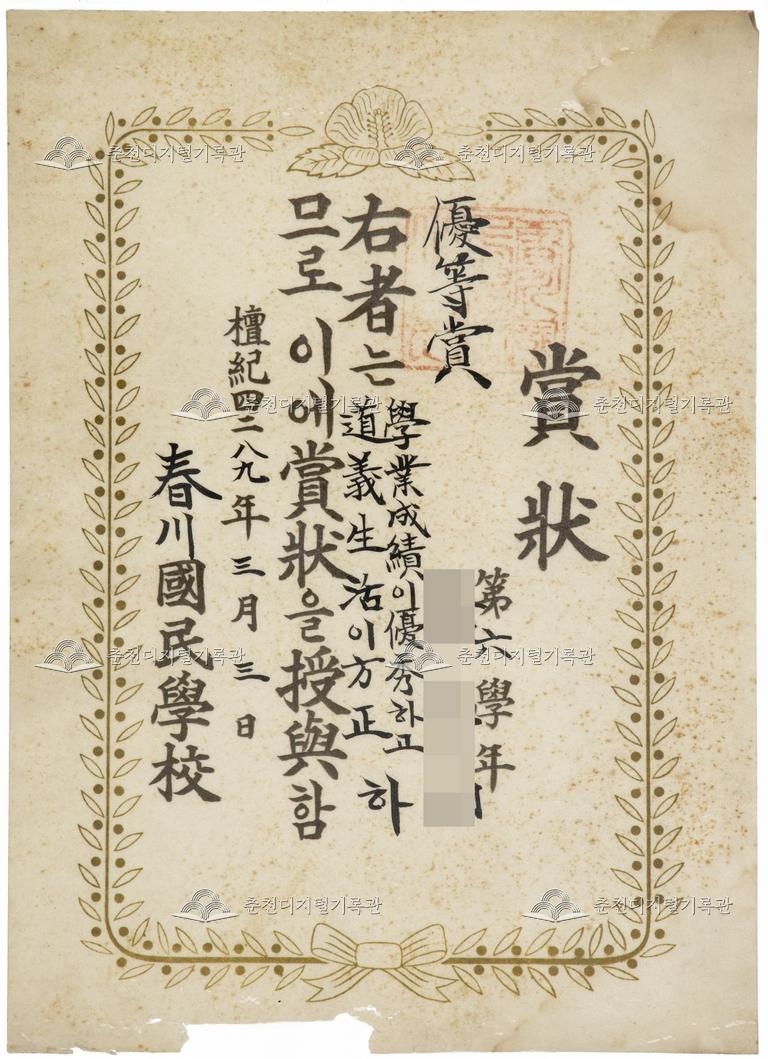 賞狀
第六學年
優等賞
右者는 學業成績이優秀하고
道義生活이方正하
므로이에賞狀을授與함
檀紀四二八九年三月三日
春川國民學校
춘천디지털기록관
춘천디지털기록관
춘천디지털기록관
춘천디지털기록관
춘천디지털기록관
춘천디지털기록관
춘천디지털기록관
춘천디지털기록관